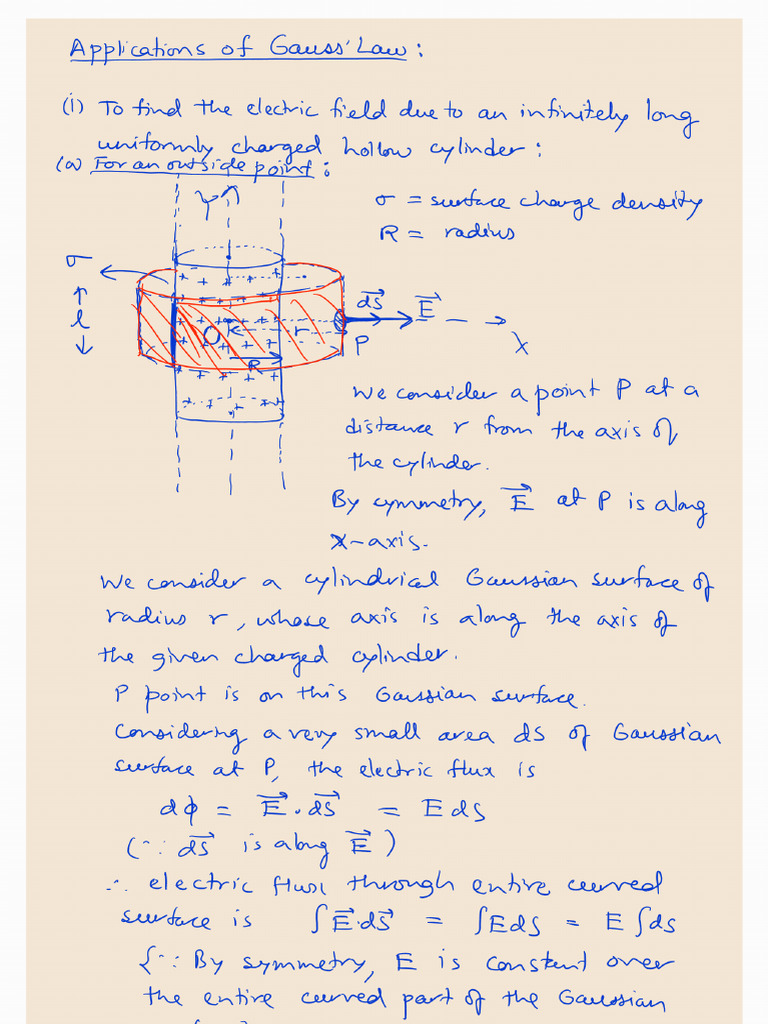 Applications of Gauss' Law:
(i) To find the electric field due to an infinitely long
uniformly charged hollow cylinder:
(a) For an outside point:
Y
σ = surface charge density
R = radius
σ
l
O
r
R
P
dS
E
X
We consider a point P at a
distance r from the axis of
the cylinder.
By symmetry, E at P is along
X-axis.
We consider a cylindrical Gaussian surface of
radius r, whose axis is along the axis of
the given charged cylinder.
P point is on this Gaussian surface.
Considering a very small area ds of Gaussian
surface at P, the electric flux is
dϕ = E⃗ . dS⃗ = E ds
(∵ dS⃗ is along E⃗)
∴ electric flux through entire curved
surface is ∫E⃗.dS⃗ = ∫Eds = E∫ds
{∵ By symmetry, E is constant over
the entire curved part of the Gaussian